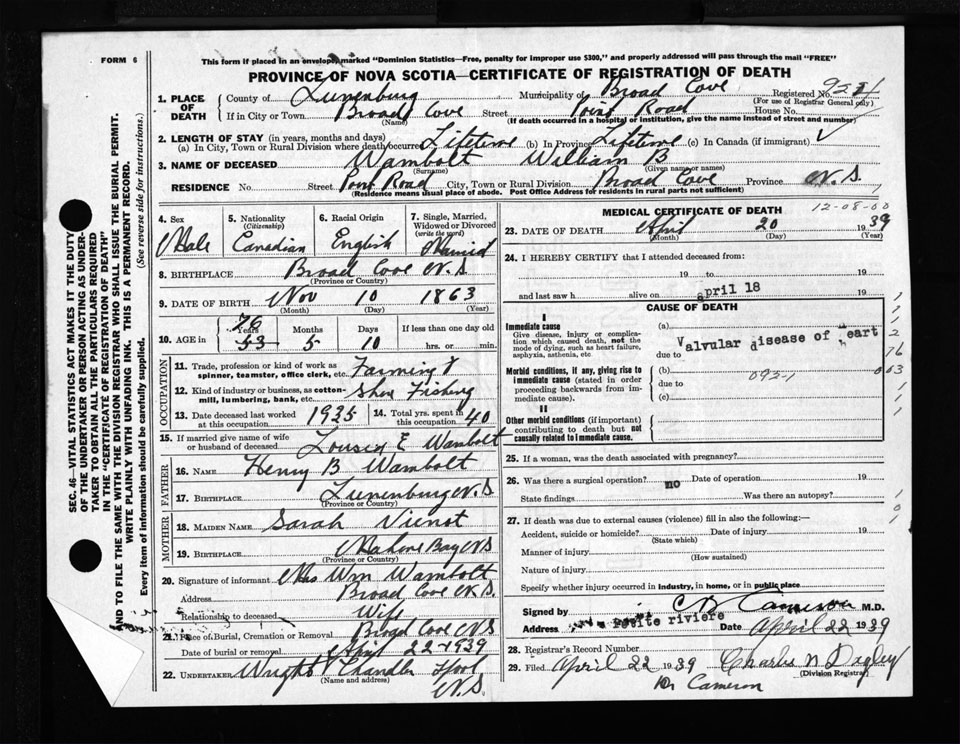 This form if placed in an envelope, marked "Dominion Statistics—Free, penalty for improper use $300," and properly addressed will pass through the mail "FREE"
FORM 6
PROVINCE OF NOVA SCOTIA—CERTIFICATE OF REGISTRATION OF DEATH
1. PLACE OF DEATH
County of Lunenburg Municipality of Broad Cove Registered No.
(For use of Registrar General only)
If in City or Town Broad Cove Street Point Road House No.
(Name) (If death occurred in a hospital or institution, give the name instead of street and number)
2. LENGTH OF STAY (in years, months and days)
(a) In City, Town or Rural Division where death occurred Lifetime (b) In Province Lifetime (c) In Canada (if immigrant) ✓
3. NAME OF DECEASED Wambolt William B
(Surname) (Given name or names)
RESIDENCE No. Street Point Road City, Town or Rural Division Broad Cove Province N.S.
(Residence means usual place of abode. Post Office Address for residents in rural parts not sufficient)
4. Sex Male
5. Nationality (Citizenship) Canadian
6. Racial Origin English
7. Single, Married, Widowed or Divorced (write the word) Married
8. BIRTHPLACE Broad Cove N.S.
(Province or Country)
9. DATE OF BIRTH Nov 10 1863
(Month) (Day) (Year)
10. AGE in 76 53 Years 5 Months 10 Days If less than one day old hrs. or min.
OCCUPATION
11. Trade, profession or kind of work as spinner, teamster, office clerk, etc. Farming &
12. Kind of industry or business, as cotton-mill, lumbering, bank, etc. Shore Fishing
13. Date deceased last worked at this occupation 1935
14. Total yrs. spent in this occupation 40
15. If married give name of wife or husband of deceased Louisa E Wambolt
FATHER
16. NAME Henry B Wambolt
17. BIRTHPLACE Lunenburg N.S
(Province or Country)
MOTHER
18. MAIDEN NAME Sarah Vienot
19. BIRTHPLACE Mahone Bay NS
(Province or Country)
20. Signature of informant Mrs Wm Wambolt
Address Broad Cove N.S.
Relationship to deceased Wife
21. Place of Burial, Cremation or Removal Broad Cove NS
Date of burial or removal April 22 1939
22. UNDERTAKER Wright Chandler
(Name and address)
N.S.
MEDICAL CERTIFICATE OF DEATH
12-08-00
23. DATE OF DEATH April 20 1939
(Month) (Day) (Year)
24. I HEREBY CERTIFY that I attended deceased from:
19 to 19
and last saw h alive on april 18 19
CAUSE OF DEATH
I
Immediate cause
Give disease, injury or complication which caused death, not the mode of dying, such as heart failure, asphyxia, asthenia, etc.
(a) Valvular disease of heart
due to
Morbid conditions, if any, giving rise to immediate cause (stated in order proceeding backwards from immediate cause).
(b) 093-1
due to
(c)
II
Other morbid conditions (if important) contributing to death but not causally related to immediate cause.
25. If a woman, was the death associated with pregnancy?
26. Was there a surgical operation? no Date of operation 19
State findings Was there an autopsy?
27. If death was due to external causes (violence) fill in also the following:—
Accident, suicide or homicide? Date of injury 19
(State which)
Manner of injury
(How sustained)
Nature of injury
Specify whether injury occurred in industry, in home, or in public place
Signed by C B Cameron M.D.
Address Petite riviere Date April 22 1939
28. Registrar's Record Number
29. Filed April 22 1939 Charles N Dagley
(Division Registrar)
Cameron
SEC. 46—VITAL STATISTICS ACT MAKES IT THE DUTY
OF THE UNDERTAKER OR PERSON ACTING AS UNDER-
TAKER TO OBTAIN ALL THE PARTICULARS REQUIRED
IN THE "CERTIFICATE OF REGISTRATION OF DEATH"
AND TO FILE THE SAME WITH THE DIVISION REGISTRAR WHO SHALL ISSUE THE BURIAL PERMIT.
WRITE PLAINLY WITH UNFADING INK. THIS IS A PERMANENT RECORD.
Every item of information should be carefully supplied. (See reverse side for instructions.)